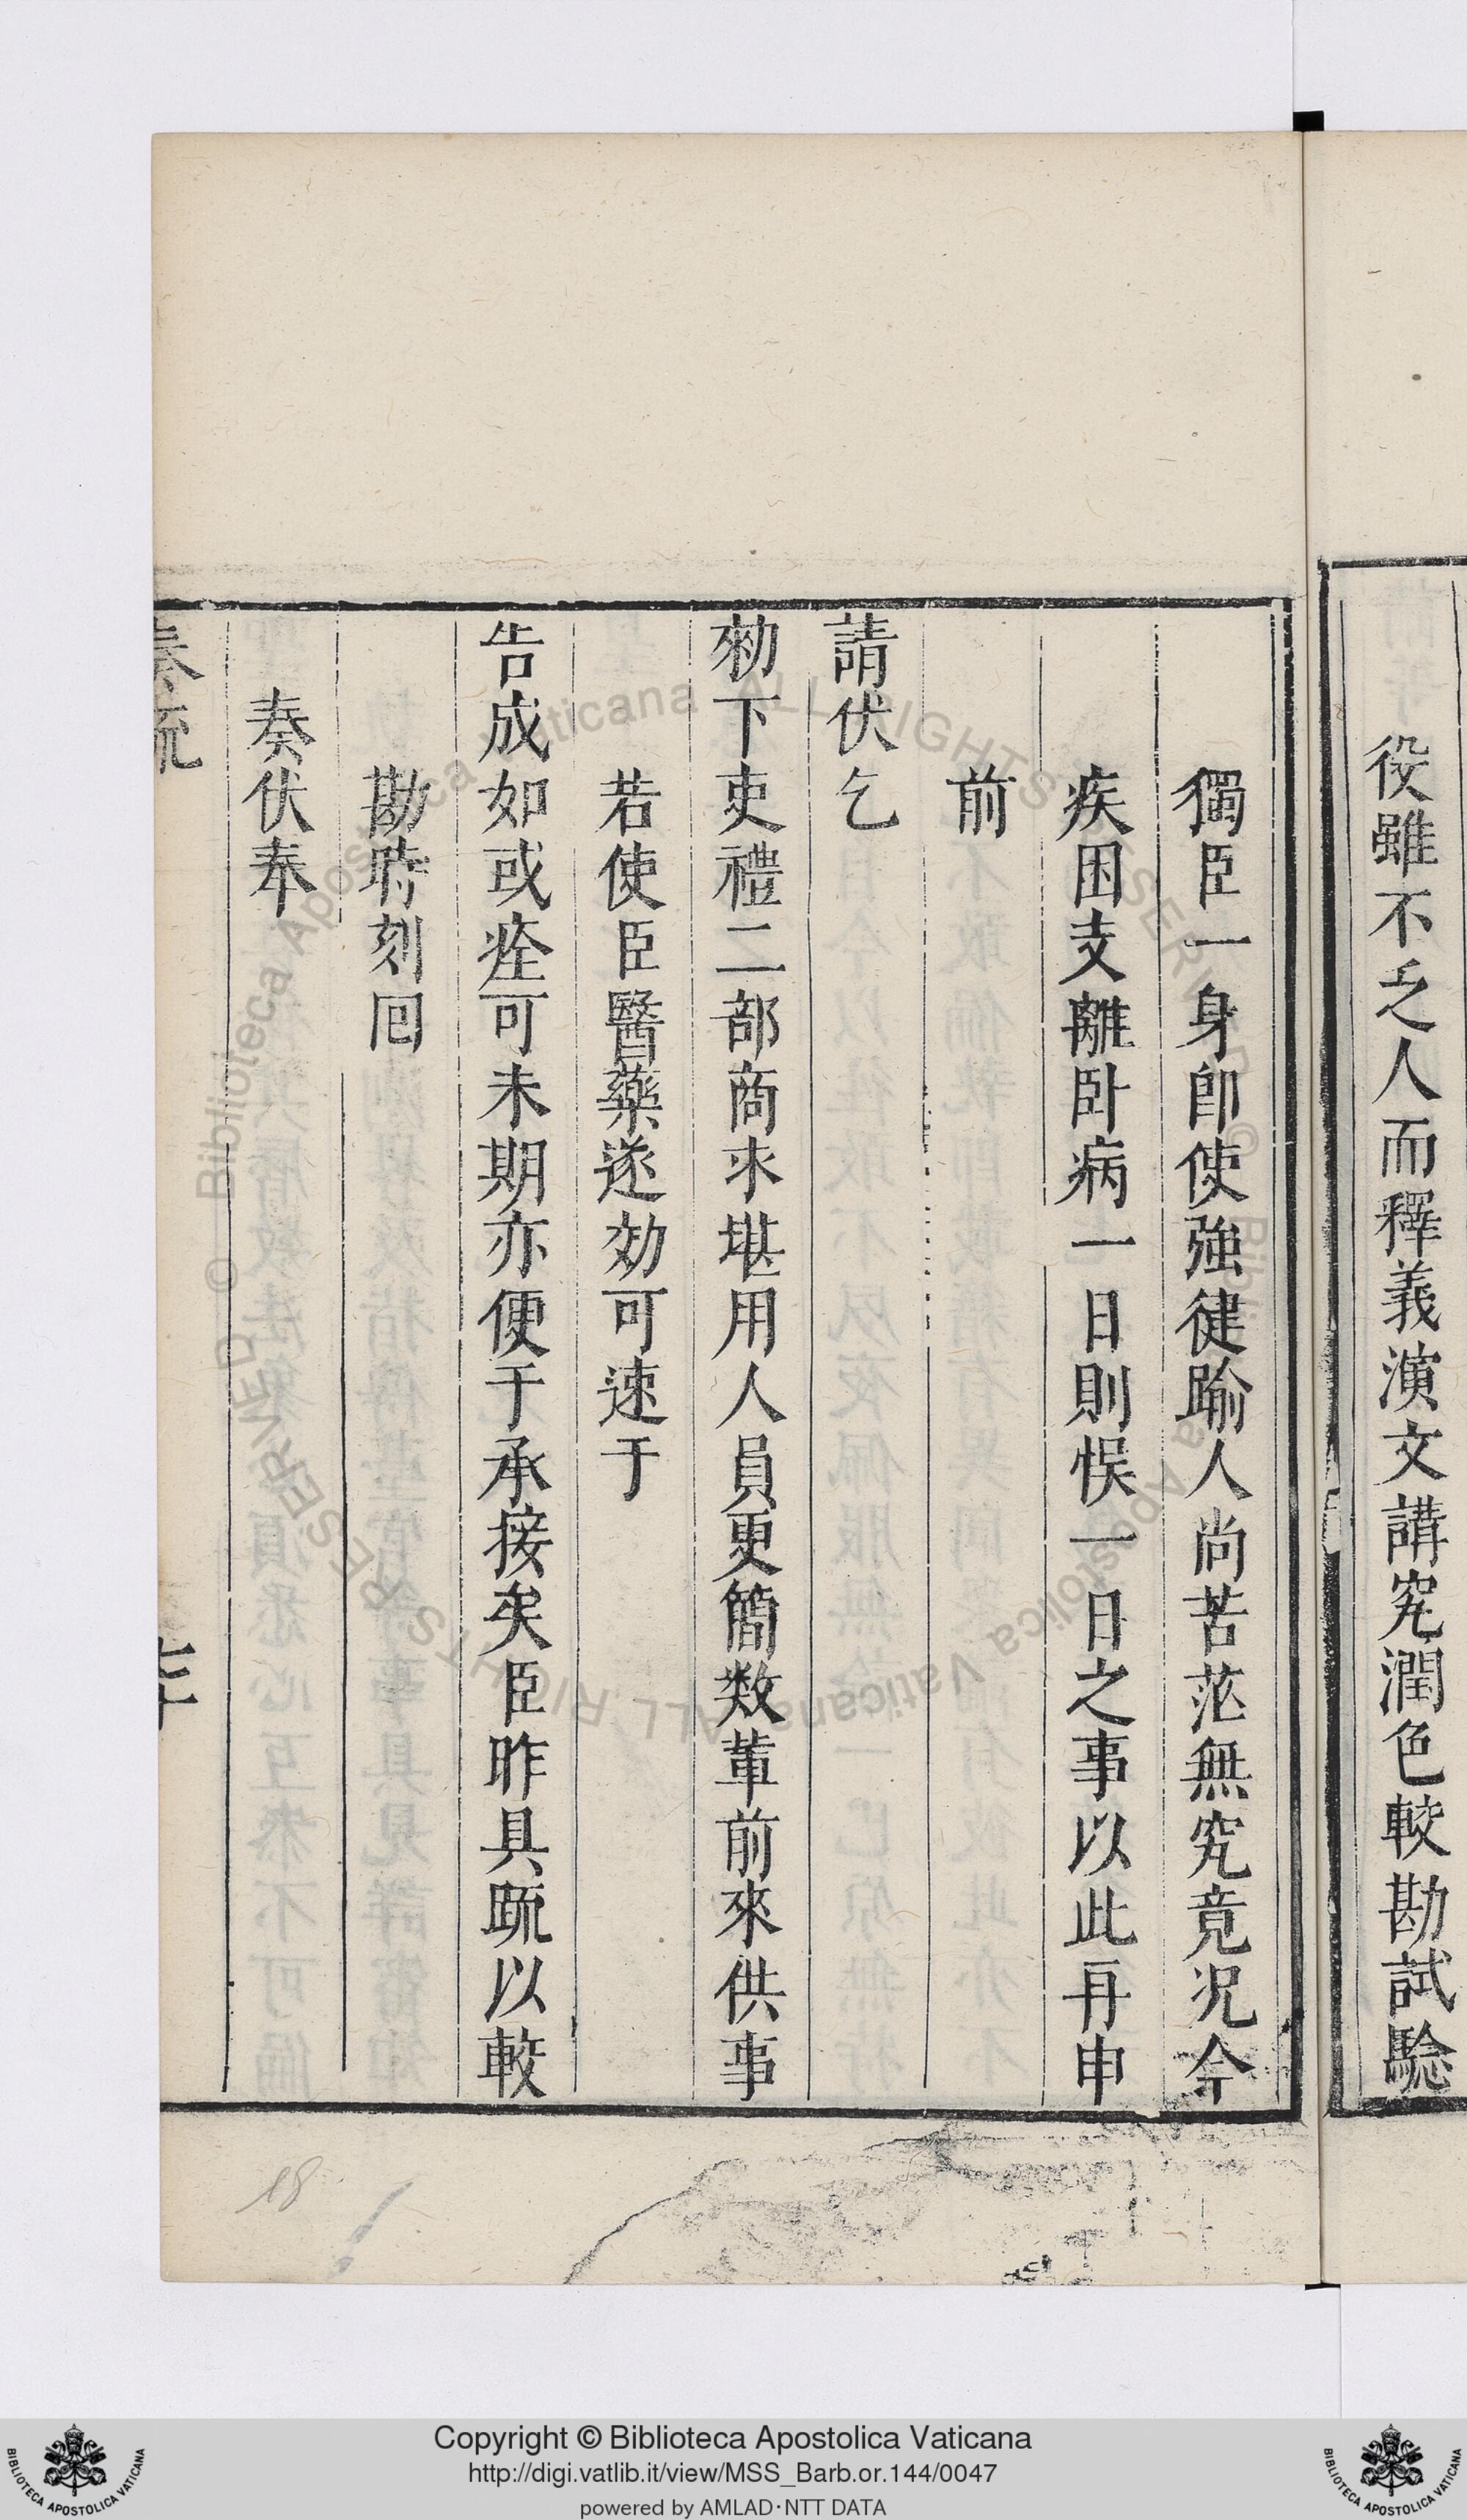 役雖不乏人而釋義演文講究潤色較勘試驗
獨臣一身卽使強健踰人尚苦茫無究竟况今
疾困支離卧病一日則悞一日之事以此再申
前
請伏乞
勑下吏禮二部商求堪用人員更簡数軰前來供事
若使臣醫藥遂効可速于
告成如或痊可未期亦便于承接矣臣昨具䟽以較
勘時刻囘
奏伏奉
奏疏
18
Copyright © Biblioteca Apostolica Vaticana
http://digi.vatlib.it/view/MSS_Barb.or.144/0047
powered by AMLAD·NTT DATA
BIBLIOTECA APOSTOLICA VATICANA
BIBLIOTECA APOSTOLICA VATICANA